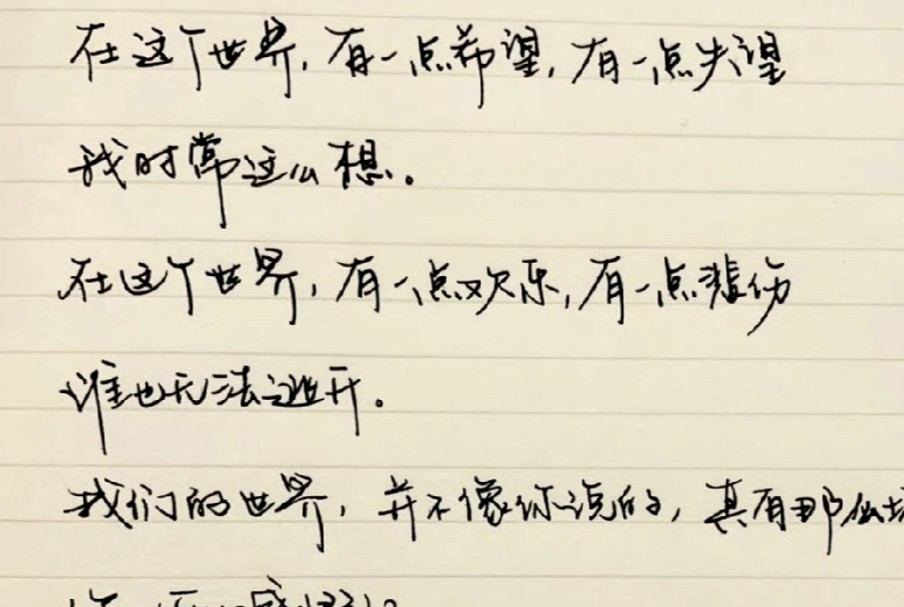 在这个世界,有一点希望,有一点失望
我时常这么想。
在这个世界,有一点欢乐,有一点悲伤
谁也无法逃开。
我们的世界,并不像你说的,真有那么坏